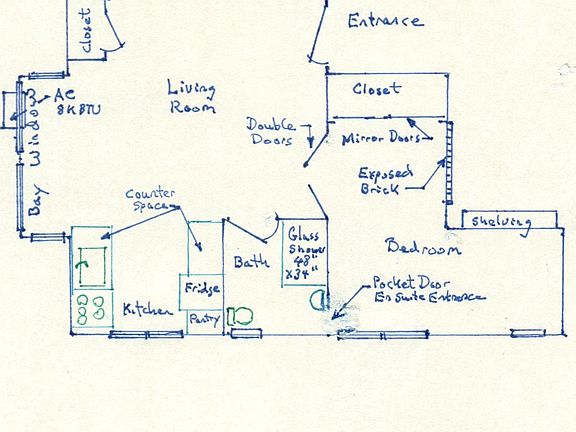 Closet
Entrance
AC
8K BTU
Bay Window
Living
Room
Closet
Double
Doors
Mirror Doors
Exposed
Brick
Counter
Space
Shelving
Glass
Shower
48"
x34"
Bath
Bedroom
Fridge
Pocket Door
En Suite Entrance
Kitchen
Pantry